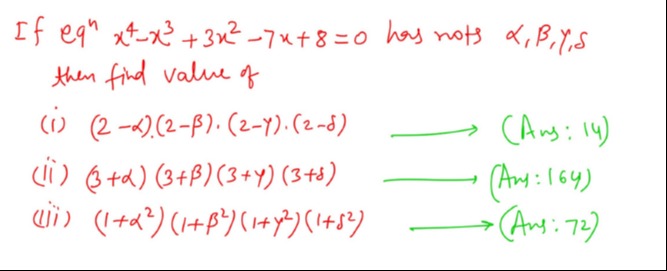 If eqⁿ x⁴-x³+3x²-7x+8=0 has roots α,β,γ,δ
then find value of
(i) (2-α).(2-β).(2-γ).(2-δ) → (Ans: 14)
(ii) (3+α)(3+β)(3+γ)(3+δ) → (Ans: 164)
(iii) (1+α²)(1+β²)(1+γ²)(1+δ²) → (Ans: 72)